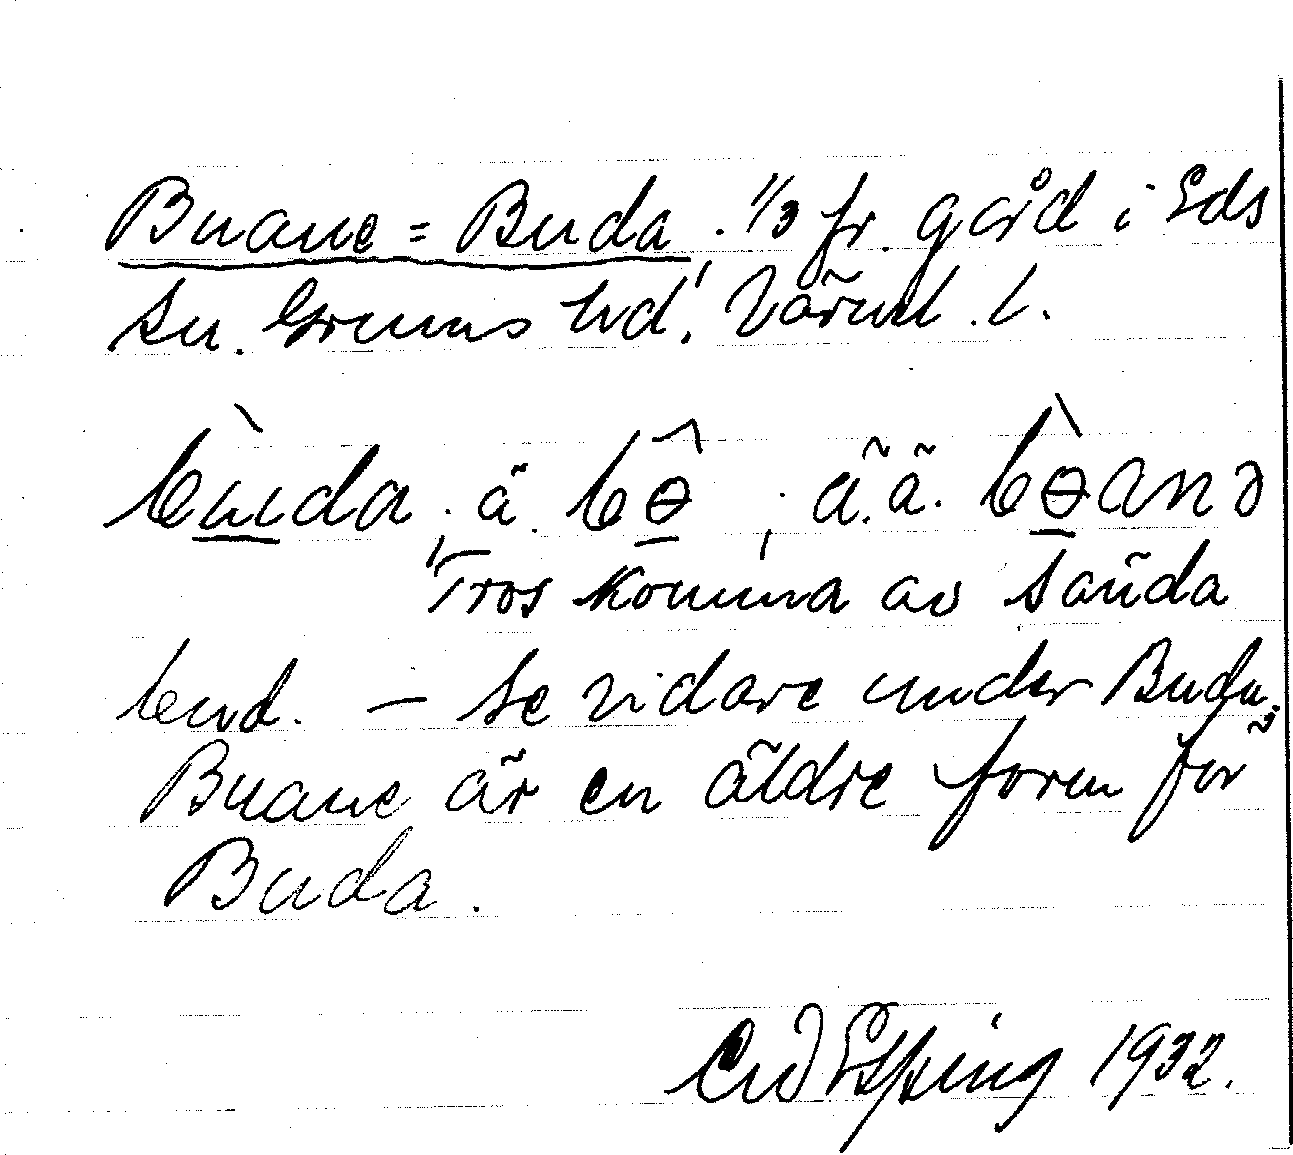 Buane = Buda. 1/3 fr. gård i Eds
sn. Grums hd, Värml. l.
bùda. ä. bɵ̂, ä. ä. bɵ̀anə
Tros komma av sända
bud. – Se vidare under Buda.
Buane är en äldre form för
Buda.
Esping 1932.